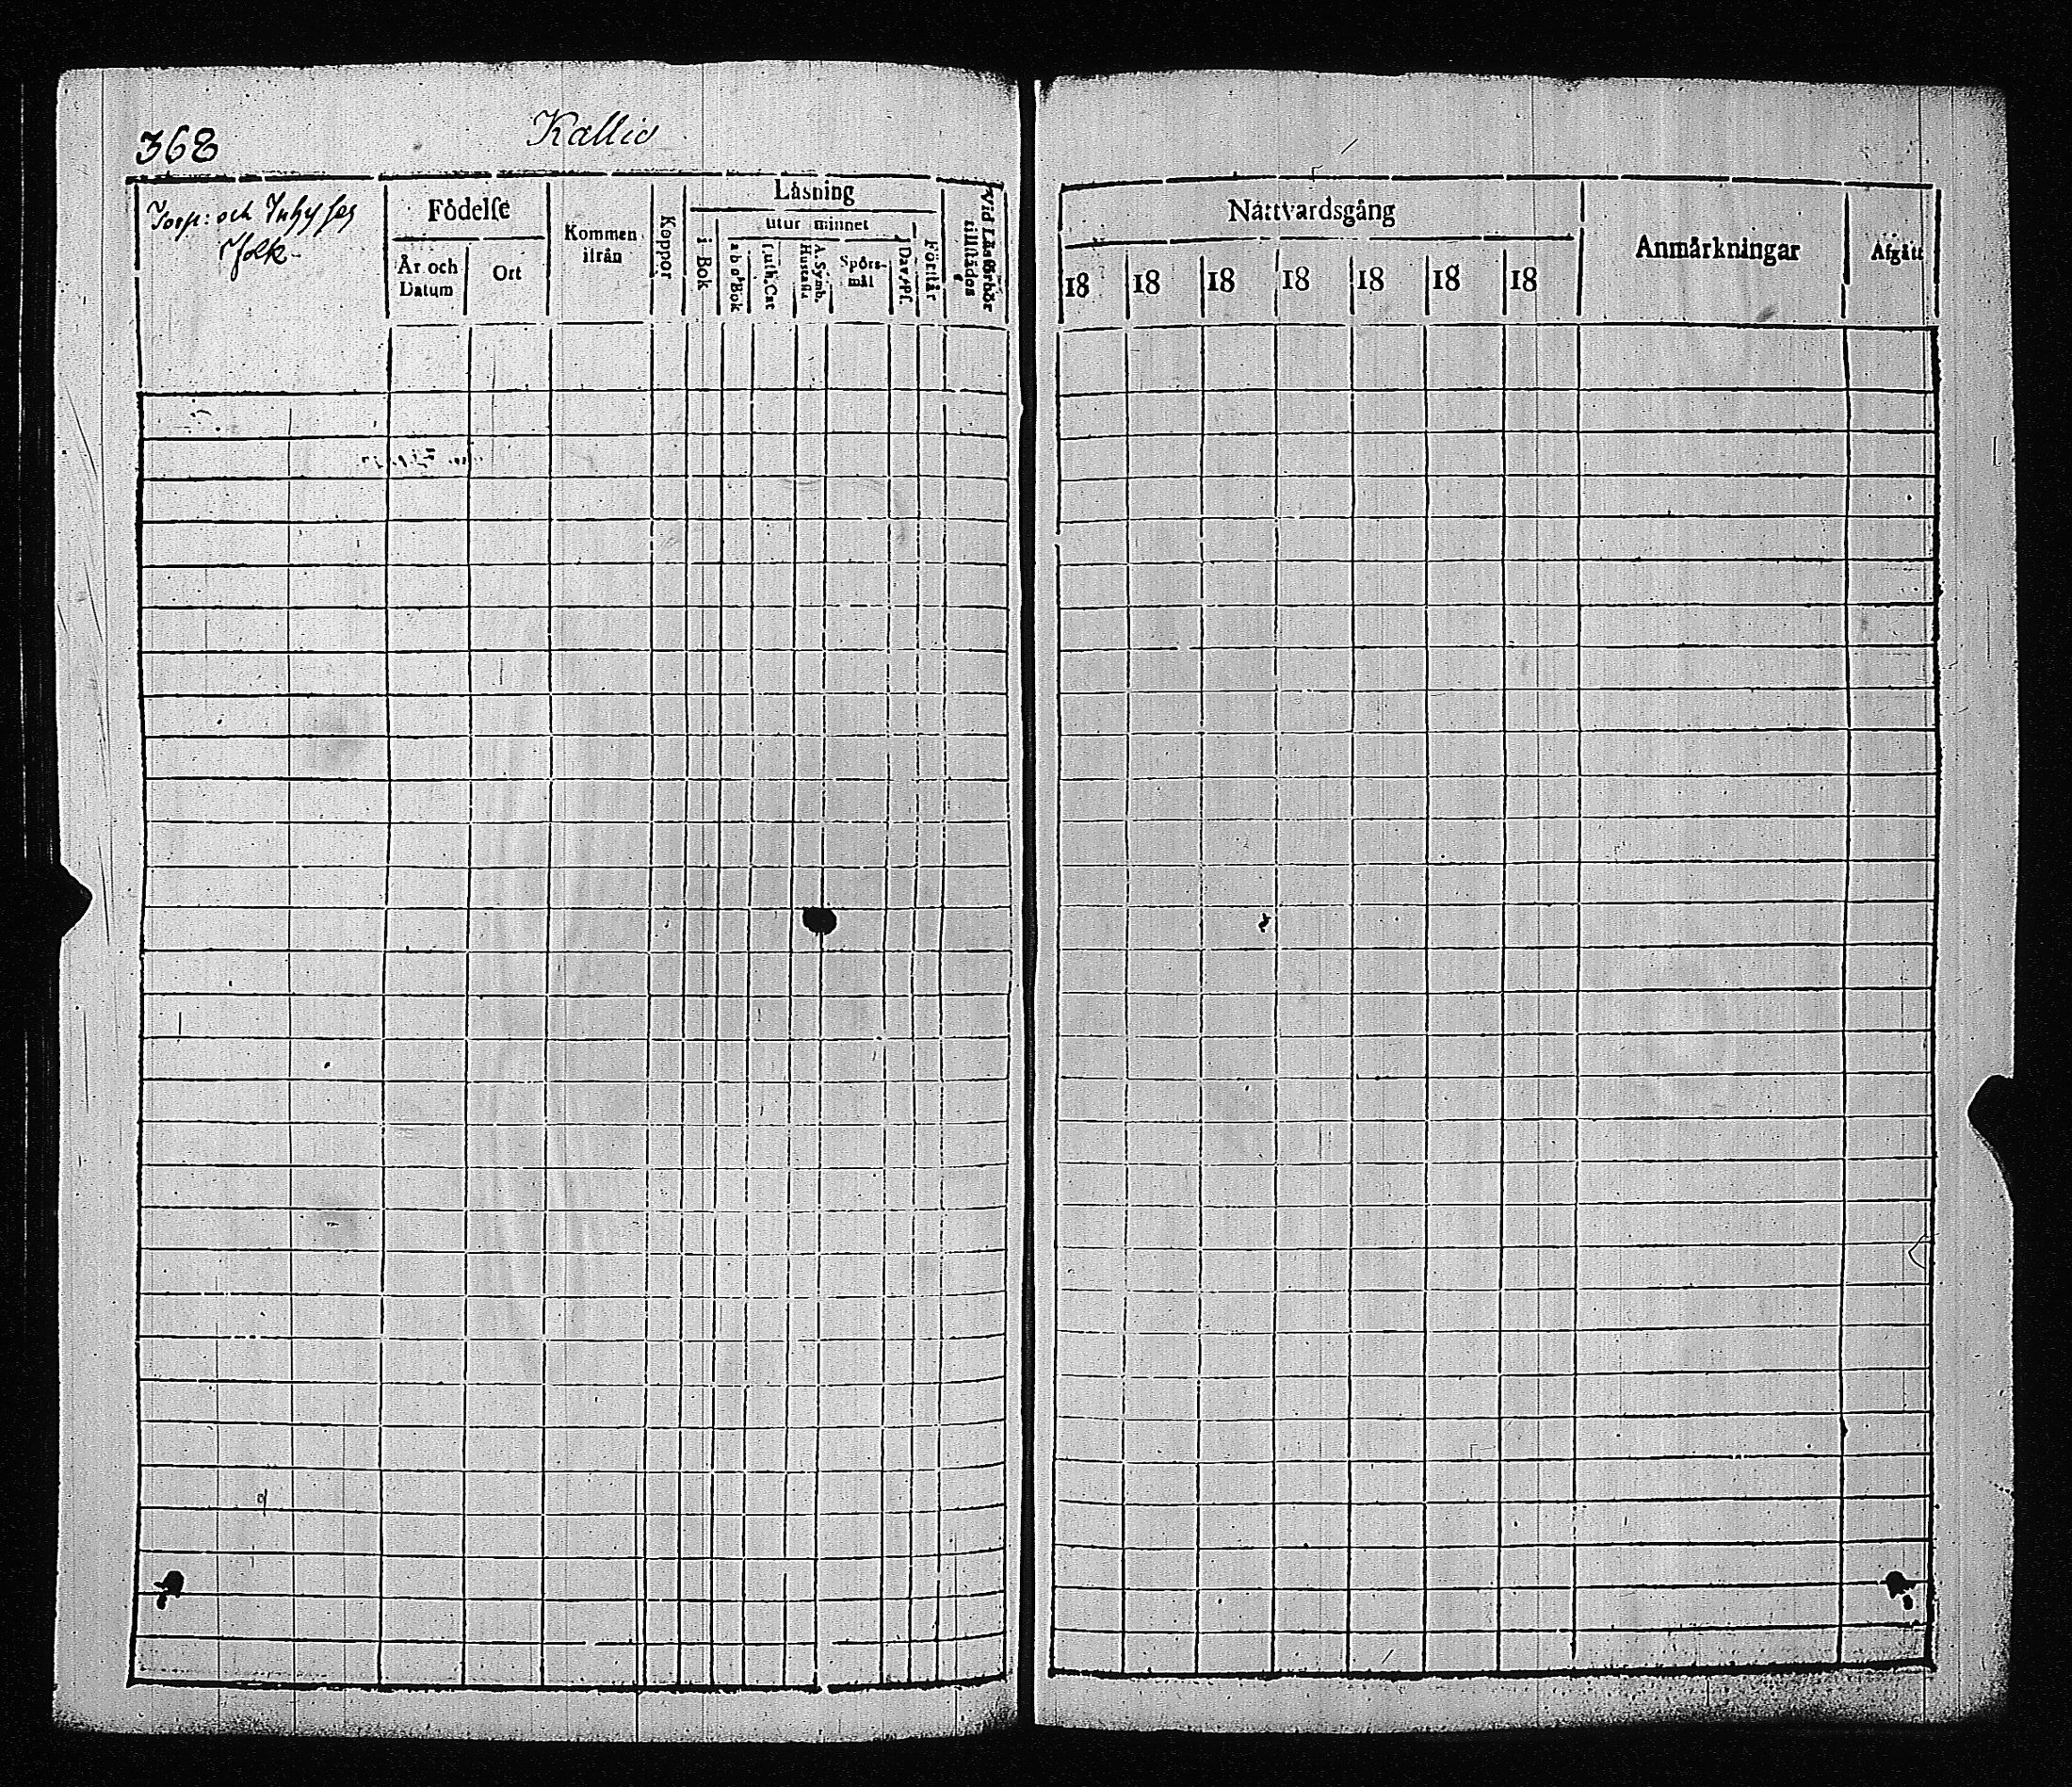 368
Kallio
Torp: och Inhyses
folk
Födelse
År och
Datum
Ort
Kommen
ifrån
Koppor
Läsning
i Bok
utur minnet
a b c Bok
Luth. Cat
A. Symb.
Hustafla
Spörs-
mål
Dav. Ps.
Förstår
Vid Läsförhör
tillstädes
Nattvardsgång
18 18 18 18 18 18 18
Anmärkningar
Afgått